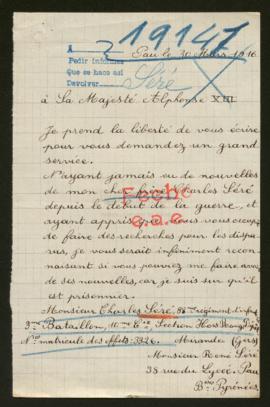 19147
A
2
Pau le 30 Mars 1916
Pedir informes
Que se haga así
Devolver
Séré
à Sa Majesté Alphonse XIII
Je prend la liberté de vous écrire
pour vous demandez un grand
service.
N'ayant jamais eu de nouvelles
de mon cher frère Charles Séré
depuis le début de la guerre, et
ayant appris que vous vous occupez
de faire des recherches pour les dispa-
rus, je vous serait infiniment recon-
naissant si vous pouviez me faire avoir
de ses nouvelles, car je suis sur qu'il
est prisonnier.
Fecho
Monsieur Charles Séré, régiment d'inf
3me Bataillon, 10me Cie, Section Hors Rang
No matricule des effets: 3326. Mirande (Gers)
Monsieur Rene Séré
38 rue du Lycée. Pau
Bses Pyrénées.